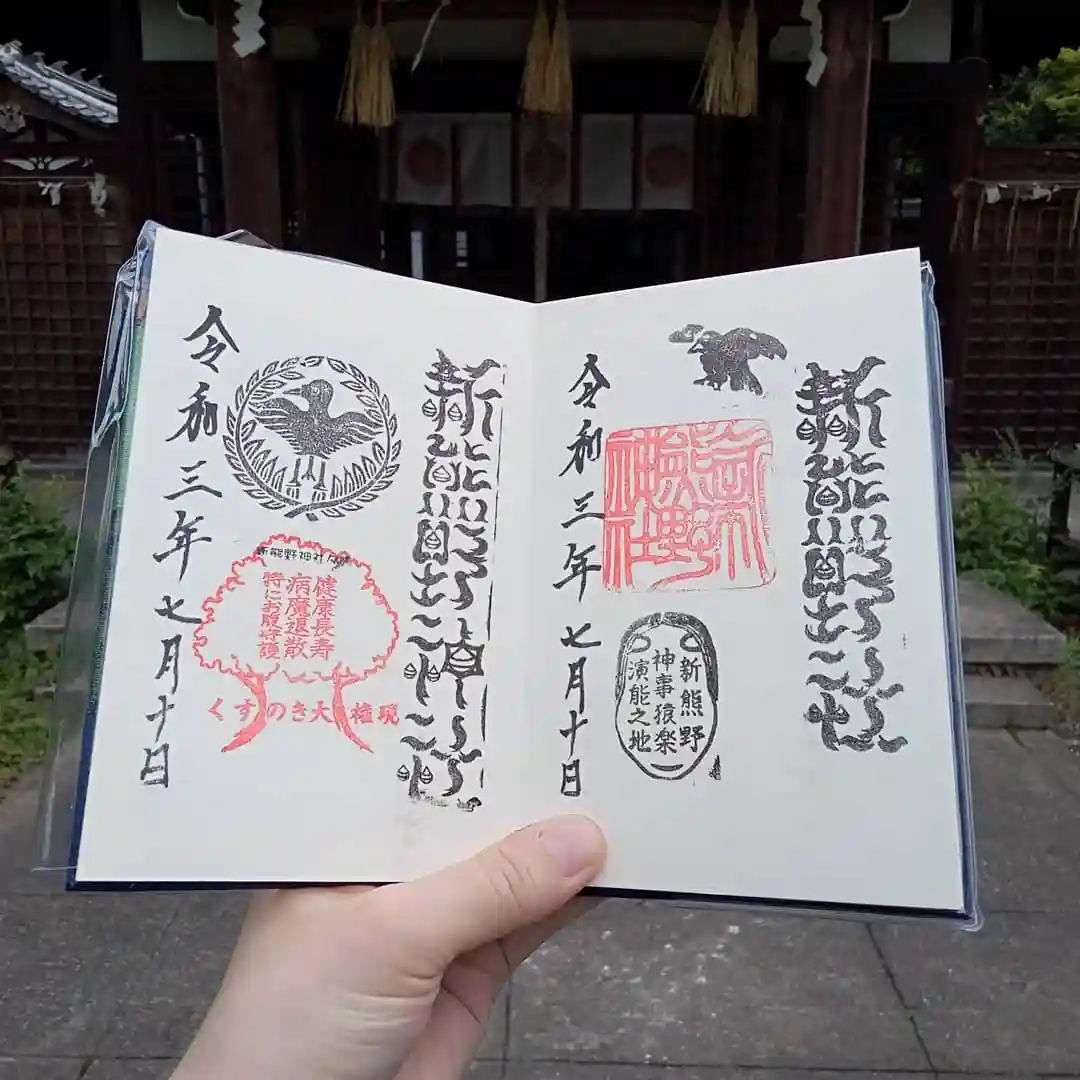 令和三年七月十日
新熊野神社
健康長寿
病魔退散
特にお腹守護
くすのき大権現
新熊野
令和三年七月十日
新熊野神社
新熊野
神事猿楽
演能之地
新熊野神社